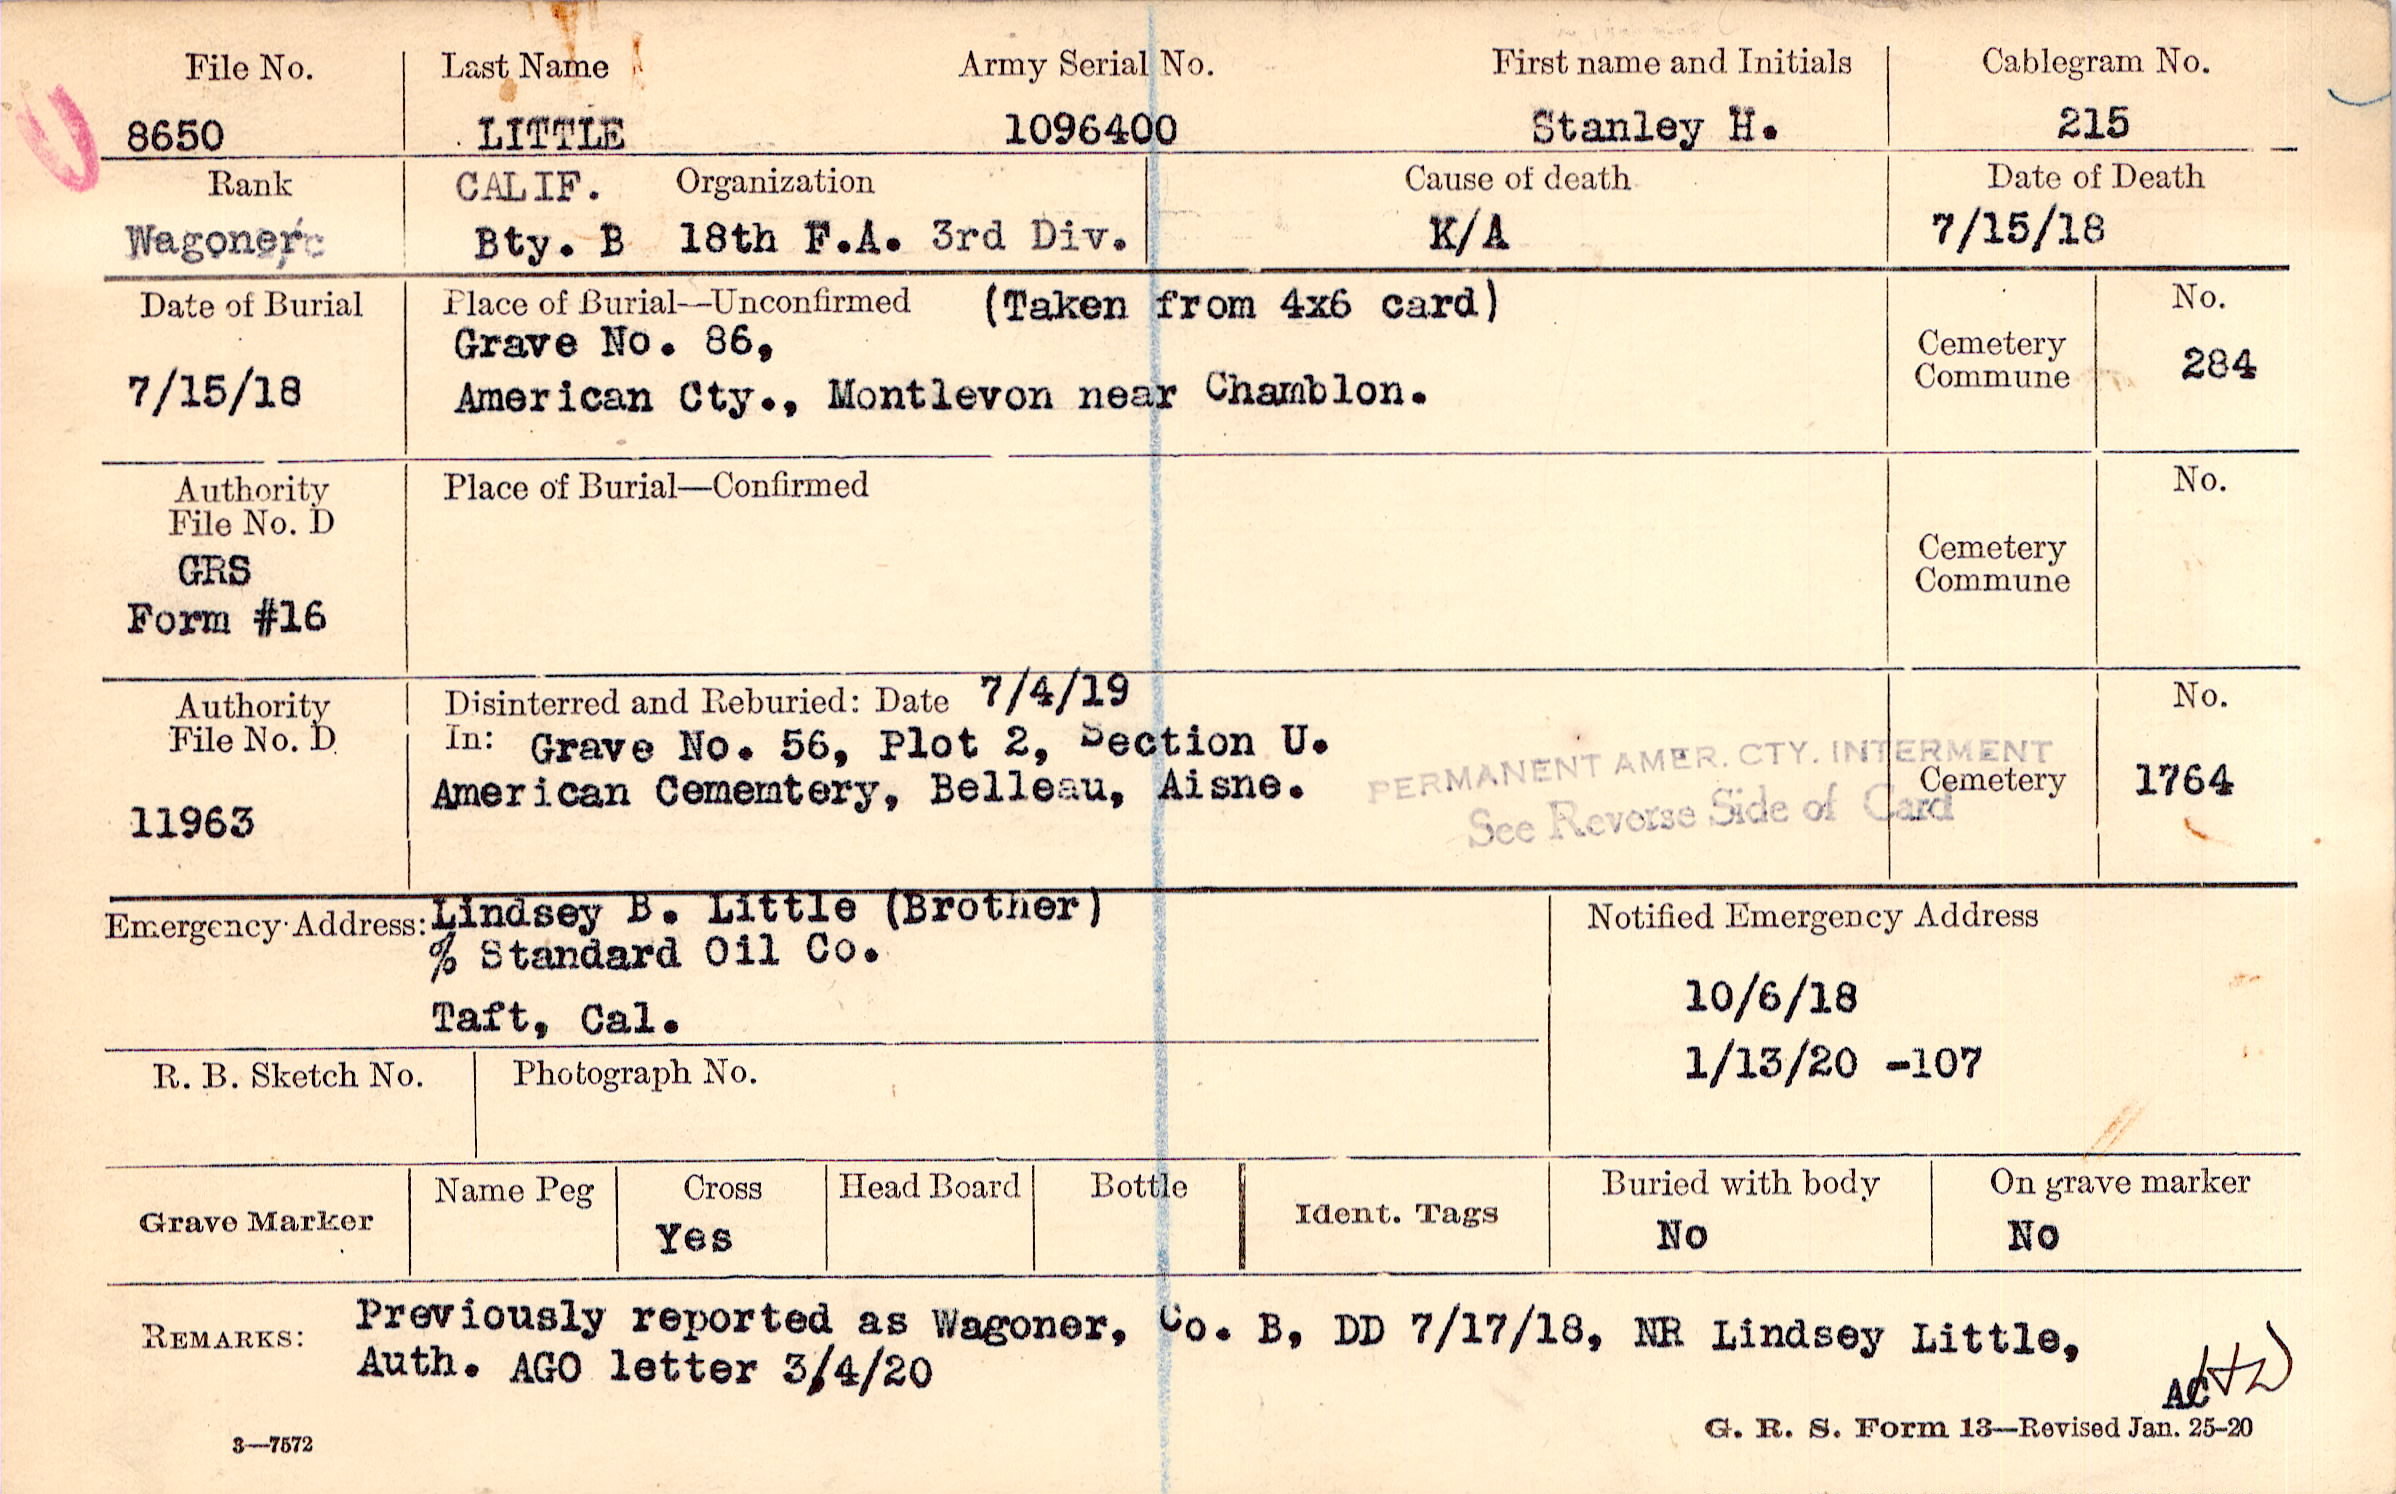 File No.
8650
Last Name
LITTLE
Army Serial No.
1096400
First name and Initials
Stanley H.
Cablegram No.
215
Rank
Wagoner
CALIF. Organization
Bty. B 18th F.A. 3rd Div.
Cause of death
K/A
Date of Death
7/15/18
Date of Burial
7/15/18
Place of Burial—Unconfirmed (Taken from 4x6 card)
Grave No. 86,
American Cty., Montlevon near Chamblon.
Cemetery
Commune
No.
284
Authority
File No. D
GRS
Form #16
Place of Burial—Confirmed
Cemetery
Commune
No.
Authority
File No. D
11963
Disinterred and Reburied: Date 7/4/19
In: Grave No. 56, Plot 2, Section U.
American Cememtery, Belleau, Aisne.
PERMANENT AMER. CTY. INTERMENT
See Reverse Side of Card
Cemetery
No.
1764
Emergency Address: Lindsey B. Little (Brother)
% Standard Oil Co.
Taft, Cal.
Notified Emergency Address
10/6/18
1/13/20 -107
R. B. Sketch No.
Photograph No.
Grave Marker
Name Peg
Cross
Yes
Head Board
Bottle
Ident. Tags
Buried with body
No
On grave marker
No
REMARKS: Previously reported as Wagoner, Co. B, DD 7/17/18, NR Lindsey Little,
Auth. AGO letter 3/4/20
AC
3—7572
G. R. S. Form 13—Revised Jan. 25-20